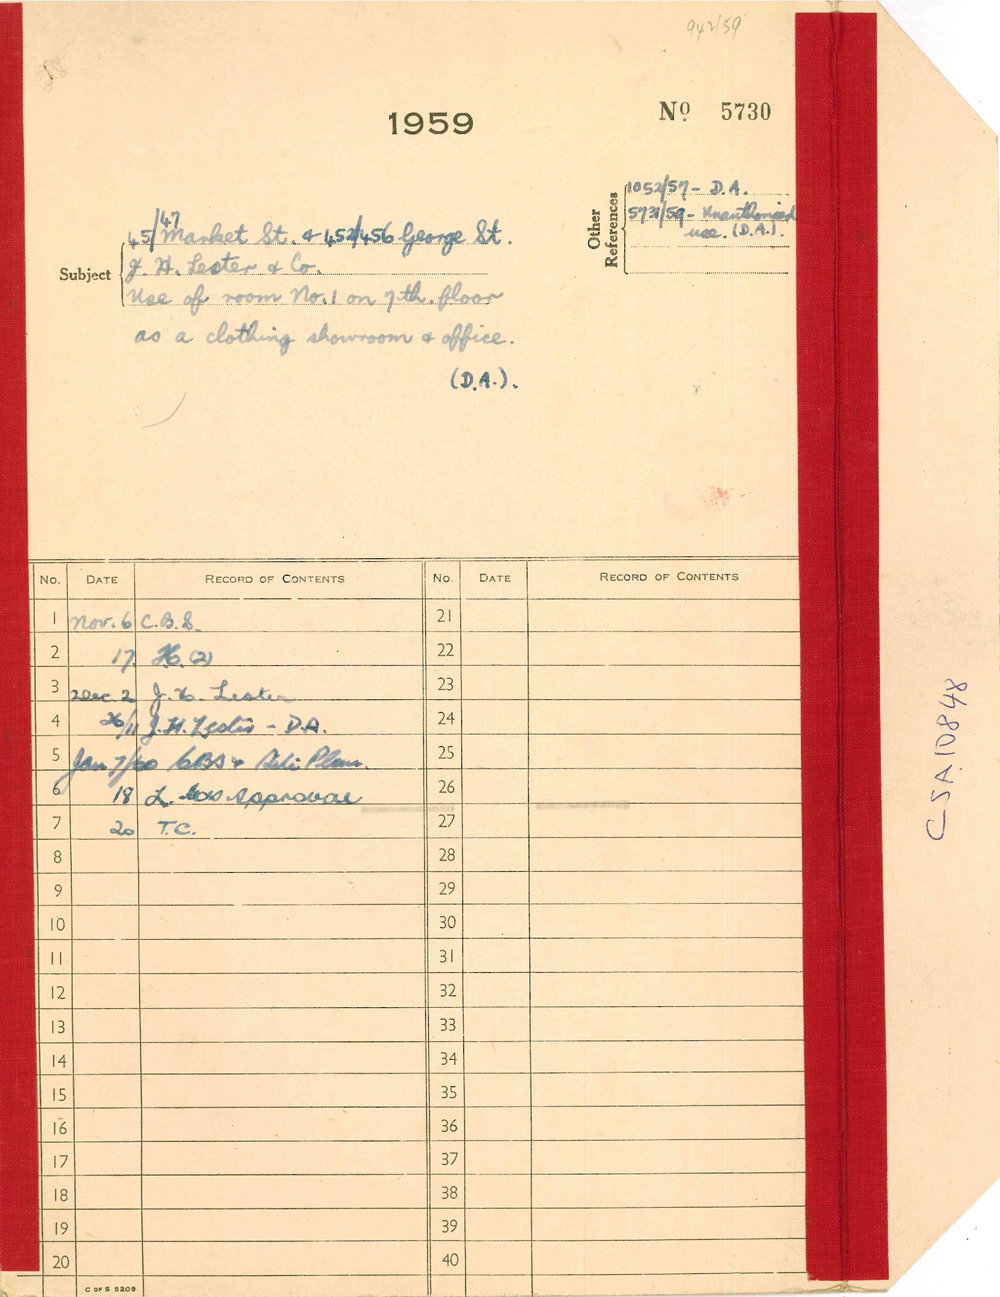 942/59
1959
No 5730
Other References
1052/57 - D.A.
5731/59 - Unauthorised
use. (D.A.).
Subject
45/47 Market St. & 452/456 George St.
J. H. Lester & Co.
Use of room No. 1 on 7th. floor
as a clothing showroom & office.
(D.A.).
No. DATE RECORD OF CONTENTS No. DATE RECORD OF CONTENTS
1 Nov. 6 C.B.S. 21
2 17 H. (2) 22
3 Dec. 2 J. H. Lester 23
4 26/11 J.H. Lester - D.A. 24
5 Jan 7/60 CBS & Site Plan. 25
6 18 L. Approval 26
7 20 T.C. 27
8 28
9 29
10 30
11 31
12 32
13 33
14 34
15 35
16 36
17 37
18 38
19 39
20 40
C OF S 5209
CSA10848